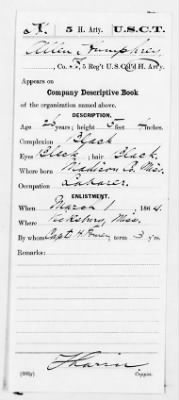 H. 5 H. Arty. U.S.C.T.
Allen Humphrey
, Co. F, 5 Reg't U.S. Col'd H. Arty.
Appears on
Company Descriptive Book
of the organization named above.
DESCRIPTION.
Age years; height 5 feet inches.
Complexion Black
Eyes Black; hair Black.
Where born Madison Co. Miss.
Occupation Laborer.
ENLISTMENT.
When March 1, 1864.
Where Vicksburg, Miss.
By whom Capt H. term 3 y'rs.
Remarks:
Copyist.